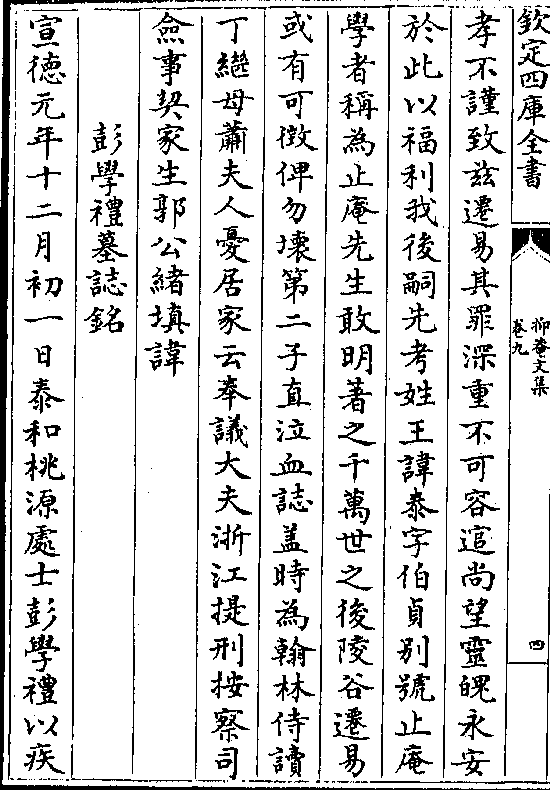 欽定四庫全書
抑菴文集
卷九
四
孝不謹致兹遷易其罪深重不可容逭尚望靈魄永安
於此以福利我後嗣先考姓王諱泰字伯貞别號止庵
學者稱為止庵先生敢明著之千萬世之後陵谷遷易
或有可徴俾勿壊第二子直泣血誌盖時為翰林侍讀
丁繼母蕭夫人憂居家云奉議大夫浙江提刑按察司
僉事契家生郭公緒填諱
彭學禮墓誌銘
宣德元年十二月初一日泰和桃源處士彭學禮以疾